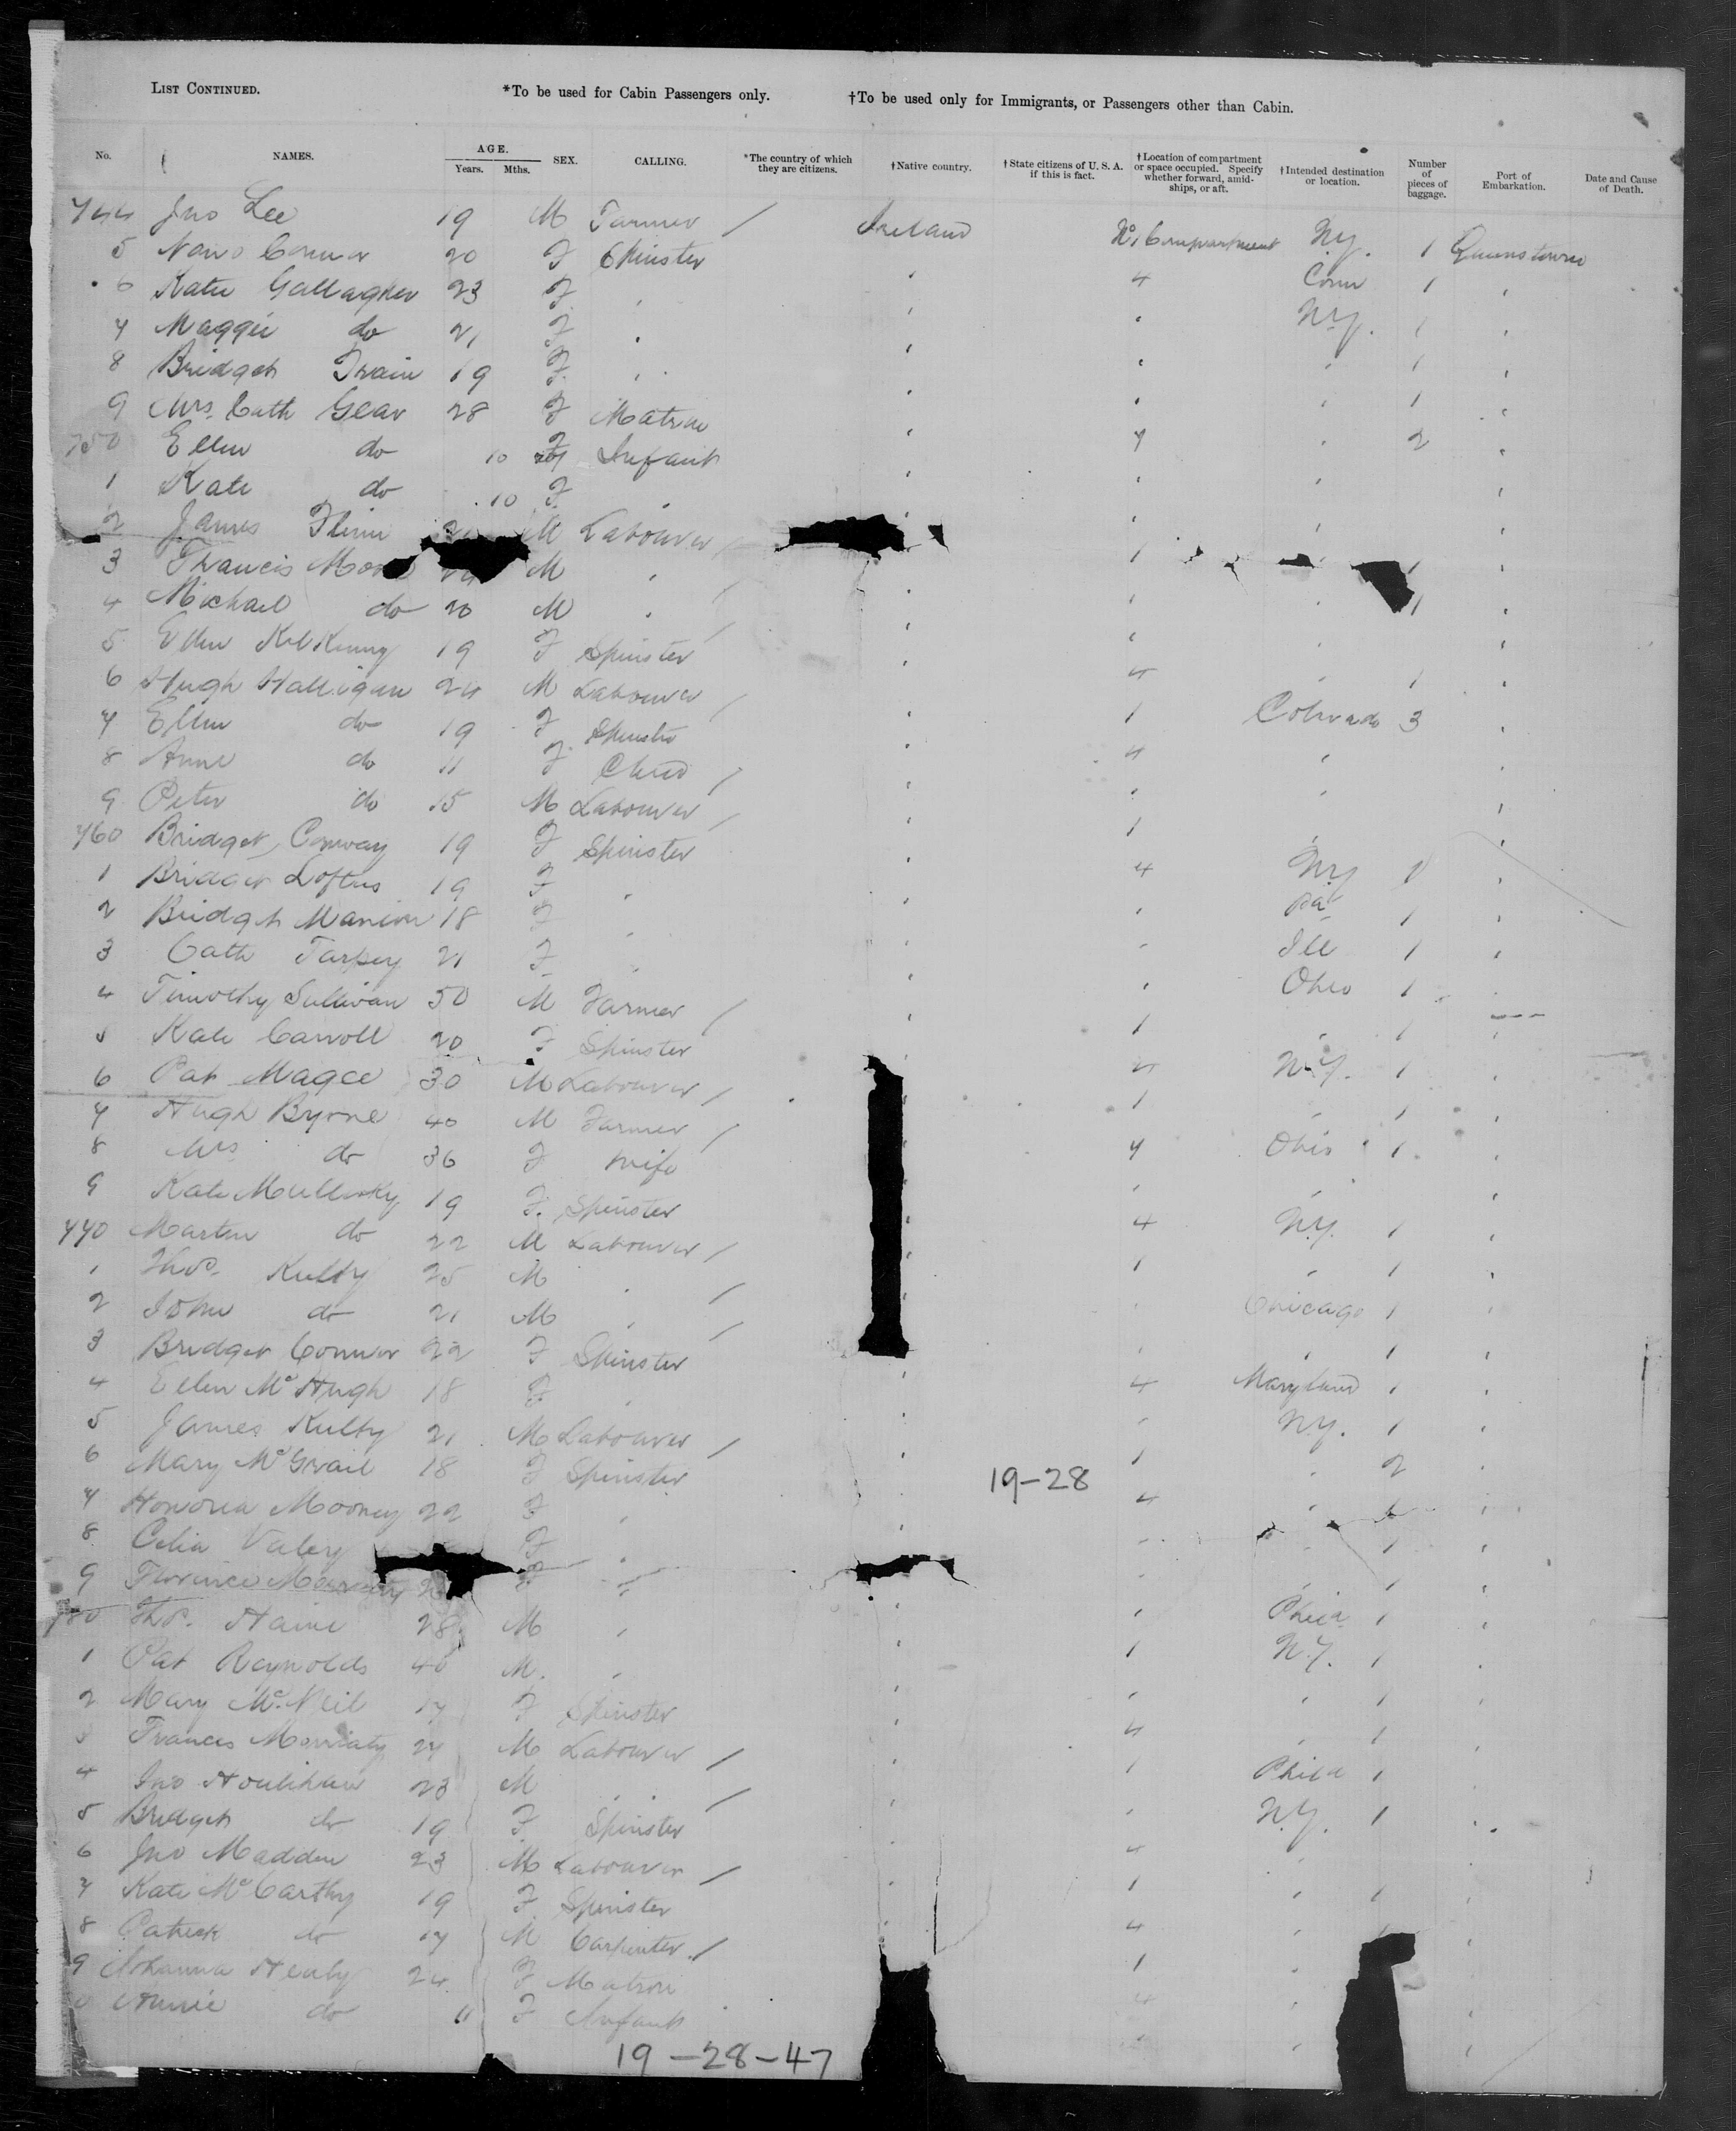 LIST CONTINUED. *To be used for Cabin Passengers only. †To be used only for Immigrants, or Passengers other than Cabin.
No. NAMES. AGE. Years. Mths. SEX. CALLING. *The country of which they are citizens. †Native country. †State citizens of U. S. A. if this is fact. †Location of compartment or space occupied. Specify whether forward, amidships, or aft. †Intended destination or location. Number of pieces of baggage. Port of Embarkation. Date and Cause of Death.
744 Jno Lee 19 M Farmer / Ireland No 1 Compartment N.Y. 1 Queenstown
5 Connor 20 F Spinster ' 4 Conn 1 '
6 Katie Gallagher 23 F ' ' ' N.Y. 1 '
7 Maggie do 21 F ' ' ' ' 1 '
8 Bridget 19 F ' ' ' ' 1 '
9 Mrs Cath Gear 28 F Matron ' 7 ' 2 '
750 Ellen do 10 F Infant ' ' ' '
1 Kate do 10 F ' ' ' ' '
2 James Flinn M Labourer / ' 1 ' 1 '
3 Francis M ' / ' ' ' 1 '
4 Michael do 20 M ' / ' ' '
5 Ellen Kilkenny 19 F Spinster ' 4 ' 1 '
6 Hugh Halligan 24 M Labourer / ' 1 Colorado 3 '
7 Ellen do 19 F Spinster ' 4 ' '
8 Anne do 11 F Child / ' ' ' '
9 Peter do 15 M Labourer / ' 1 ' '
760 Bridget Conway 19 F Spinster ' 4 N.Y. 1 '
1 Bridget Loftus 19 F ' ' ' Pa 1 '
2 Bridget Manion 18 F ' ' ' Ill 1 '
3 Cath Tarpey 21 F ' ' ' Ohio 1 '
4 Timothy Sullivan 50 M Farmer / ' 1 ' 1 '
5 Kate Carroll 20 F Spinster ' 4 N.Y. 1 '
6 Pat Magee 30 M Labourer / 1 ' 1 '
7 Hugh Byrne 40 M Farmer / 7 Ohio 1 '
8 Mrs do 36 F Wife ' ' '
9 Kate 19 F Spinster 4 N.Y. 1 '
770 Martin do 22 M Labourer / 1 ' 1 '
1 Thos. Kulty 25 M ' / ' Chicago 1 '
2 John do 21 M ' / ' ' 1 '
3 Bridget Connor 22 F Spinster ' 4 Maryland 1 '
4 Ellen McHugh 18 F ' ' ' N.Y. 1 '
5 James Kulty 21 M Labourer / ' 1 ' 2 '
6 Mary McGrail 18 F Spinster ' 4 ' '
19-28
7 Honoria Mooney 22 F ' ' ' ' 1 '
8 Celia F ' ' ' 1 '
9 Florence F ' ' Phila 1 '
780 Thos. 28 M ' ' 1 N.Y. 1 '
1 Pat Reynolds 40 M ' ' ' ' 1 '
2 Mary McNeil 17 F Spinster ' 4 ' 1 '
3 Francis 27 M Labourer / ' 1 Phila 1 '
4 Jno Houlihan 23 M ' / ' ' N.Y. 1 '
5 Bridget do 19 F Spinster ' 4 '
6 Jno Madden 23 M Labourer / ' 1 ' 1 '
7 Kate McCarthy 19 F Spinster ' 4 ' 1 '
8 Patrick do 17 M Carpenter / 1 '
9 Johanna Healy 24 F Matron 4 ' '
Annie do 11 F Infant ' ' '
19-28-47